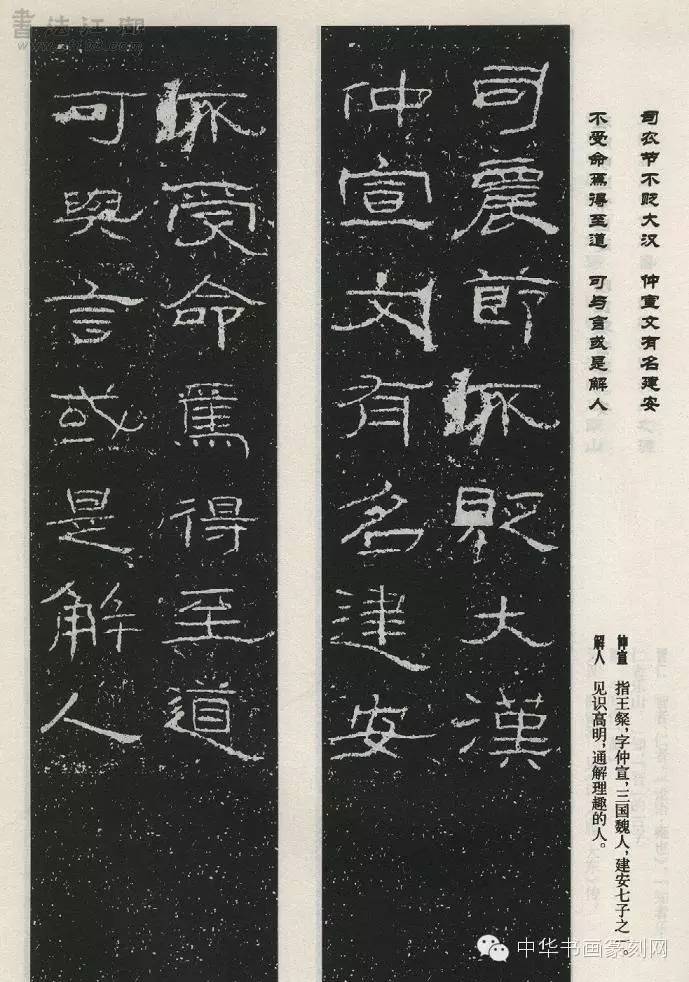 司农节不贬大汉 仲宣文有名建安
不受命焉得至道 可与言或是解人
仲宣 指王粲，字仲宣，三国魏人，建安七子之一。
解人 见识高明，通解理趣的人。
司農節不貶大漢
仲宣文有名建安
不受命焉得至道
可與言或是解人
書法江湖
中华书画篆刻网